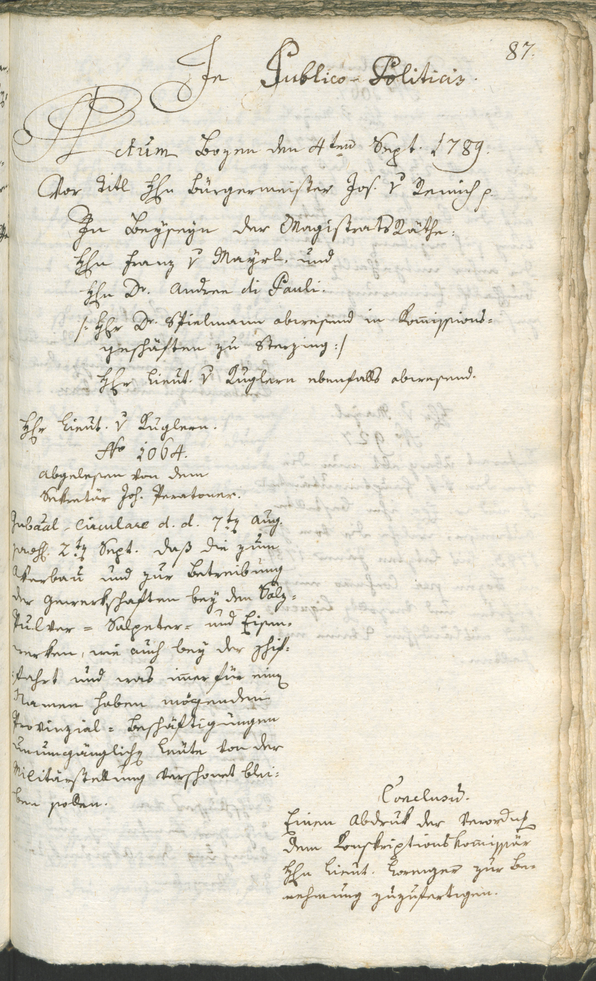 87.
In Publico-Politicis.
Actum Bozen den 4ten Sept. 1789.
Vor Titl Hhn Bürgermeister Jos. v Remich p
In Beyseyn der MagistratsRäthe:
Hhn Franz v Mayrl. und
Hhn Dr. Andree di Pauli.
/: Hhr Dr. Stielmann abwesend in Kommissions=
geschäften zu Sterzing :/
Hhr Lieut. v Kuglern ebenfalls abwesend.
Hhr Lieut. v Kuglern.
No 1064.
Abgelesen von dem
Sekretär Joh. Peratoner.
Gubernial-Circulare d. d. 7ten Aug.
2ten Sept. daß die zum
Ackerbau und zur Betreibung
der Gewerkschaften bey den Salz=
Pulver= Salpeter= und Eisen=
werken, wie auch bey der Schif=
fahrt und was imer für einen
Namen haben mögenden
Provinzial=Beschäftigungen
unumgänglichen Leute von der
Militärstellung verschonet blei=
ben sollen.
Conclusum.
Einen Abdruk der Verordnung
dem Konskriptionskommissär
Hhn Lieut. Lorenger zur Be=
nehmung zuzufertigen.